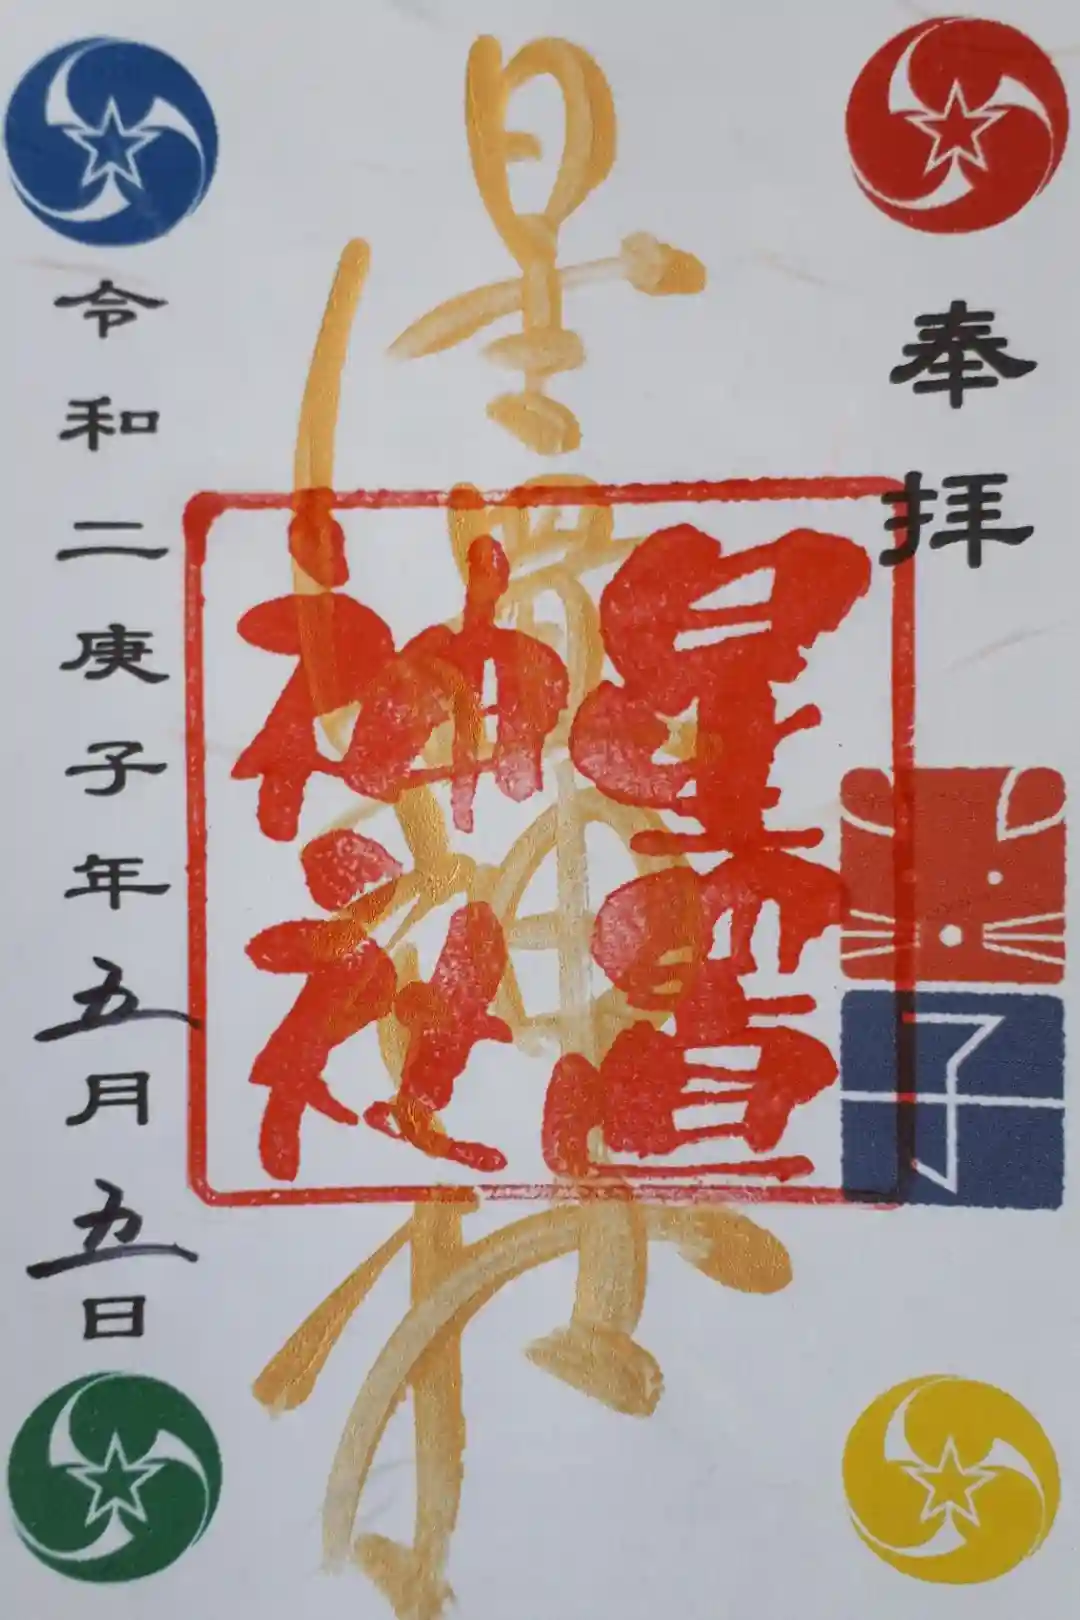 奉拝
星置神社
星置
神社
子
令和二庚子年五月五日